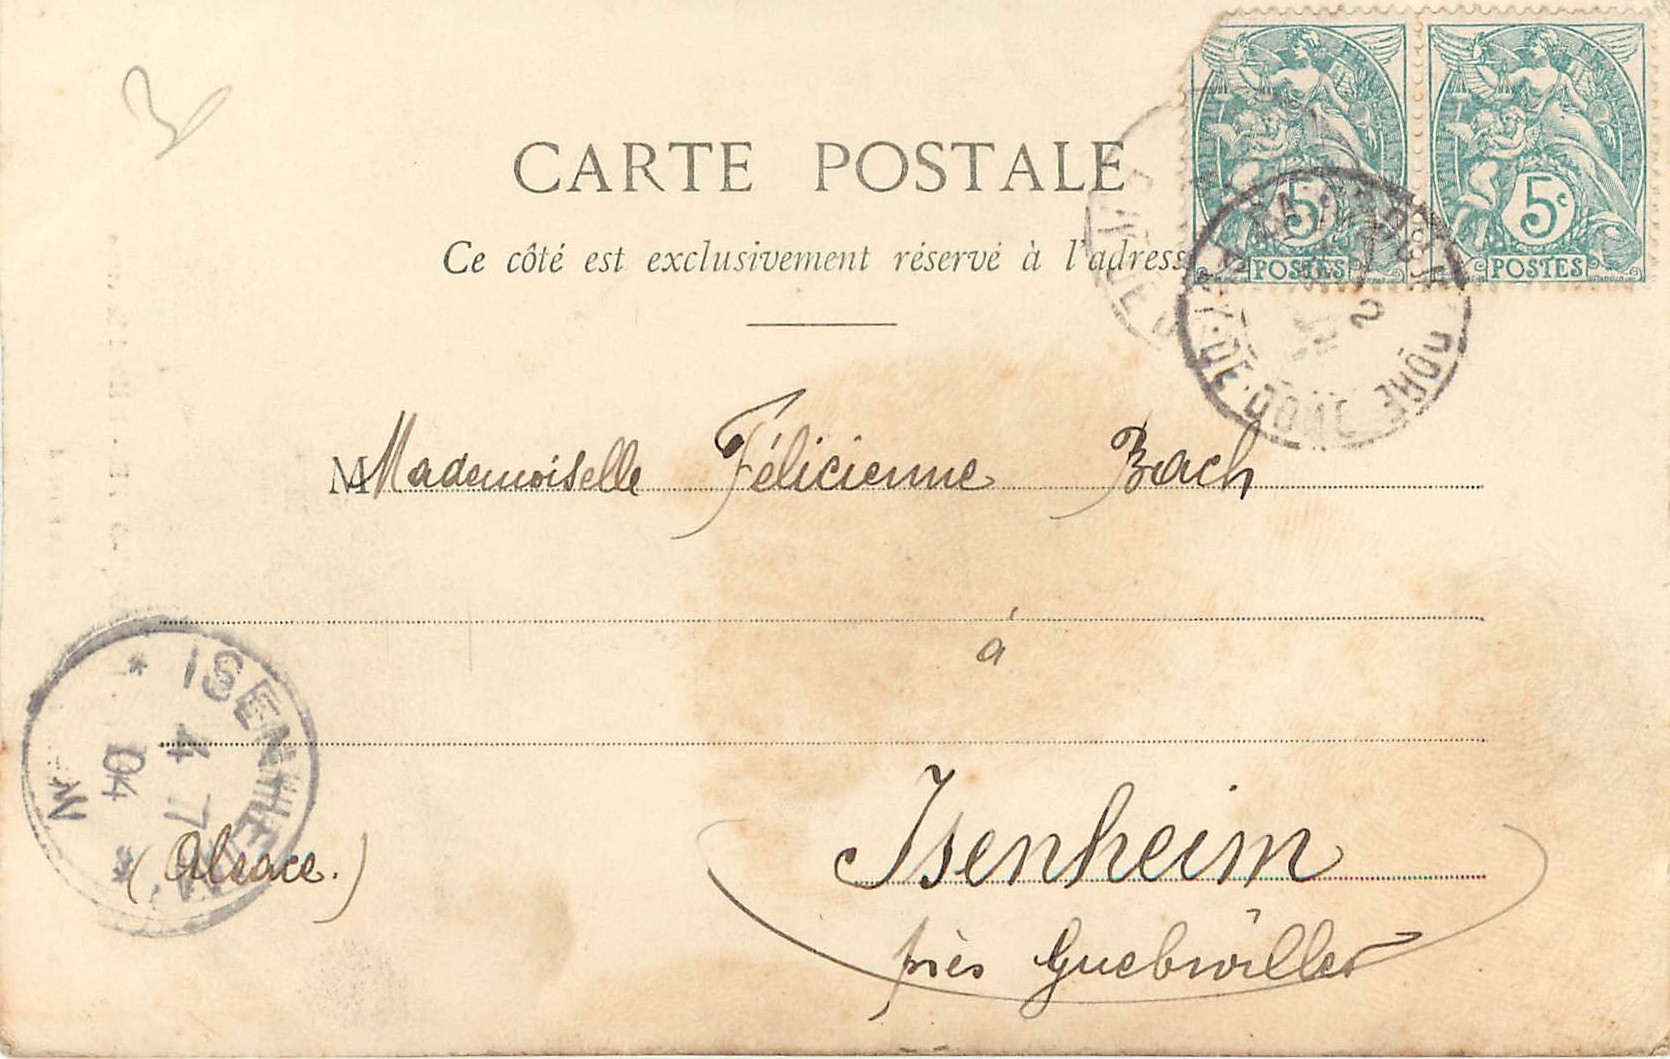 CARTE POSTALE
Ce côté est exclusivement réservé à l'adress
5c
POSTES
5c
POSTES
PUY-DE-DOME
M Mademoiselle Félicienne Bach
à
Isenheim
près Guebwiller
(Alsace.)
ISENHEIM
4 7
04
N